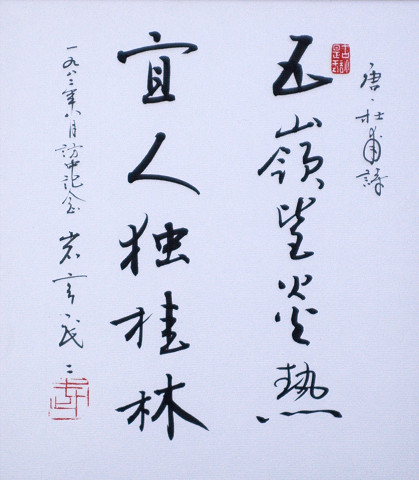 唐・杜甫詩
五嶺皆炎熱
宜人独桂林
一九八三年八月訪中記念